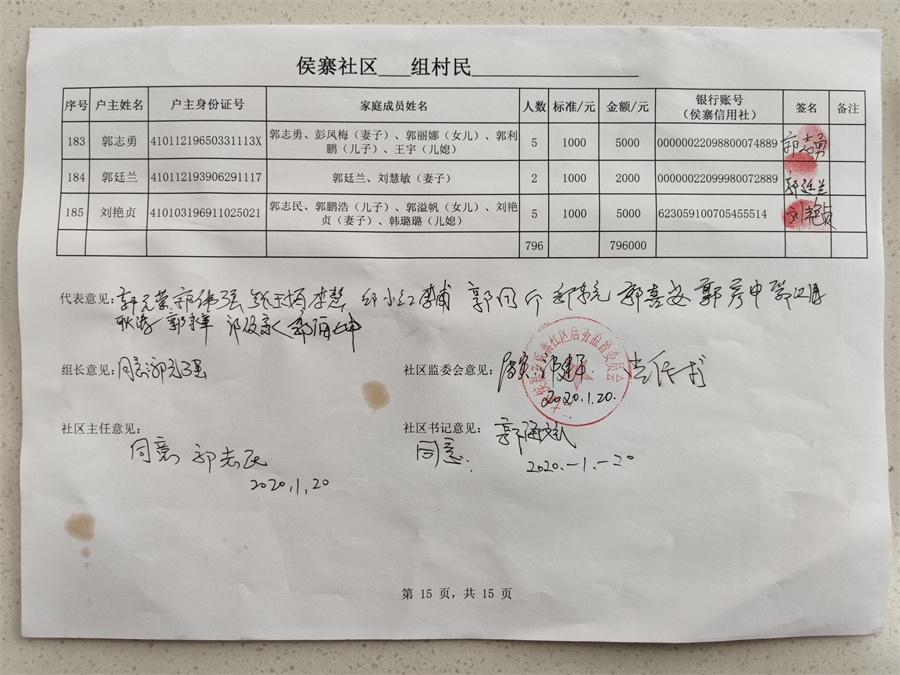 侯寨社区___组村民_______________
序号 户主姓名 户主身份证号 家庭成员姓名 人数 标准/元 金额/元 银行账号（侯寨信用社） 签名 备注
183 郭志勇 41011219650331113X 郭志勇、彭凤梅（妻子）、郭丽娜（女儿）、郭利鹏（儿子）、王宇（儿媳） 5 1000 5000 00000022098800074889 郭志勇
184 郭廷兰 410112193906291117 郭廷兰、刘慧敏（妻子） 2 1000 2000 00000022099980072889 郭廷兰
185 刘艳贞 410103196911025021 郭志民、郭鹏浩（儿子）、郭溢帆（女儿）、刘艳贞（妻子）、韩璐璐（儿媳） 5 1000 5000 623059100705455514 刘艳贞
796 796000
代表意见：
组长意见：同意
社区监委会意见：
2020.1.20.
社区主任意见：
同意 郭志民
2020.1.20
社区书记意见：
同意：
2020.-1.-20
第 15 页，共 15 页